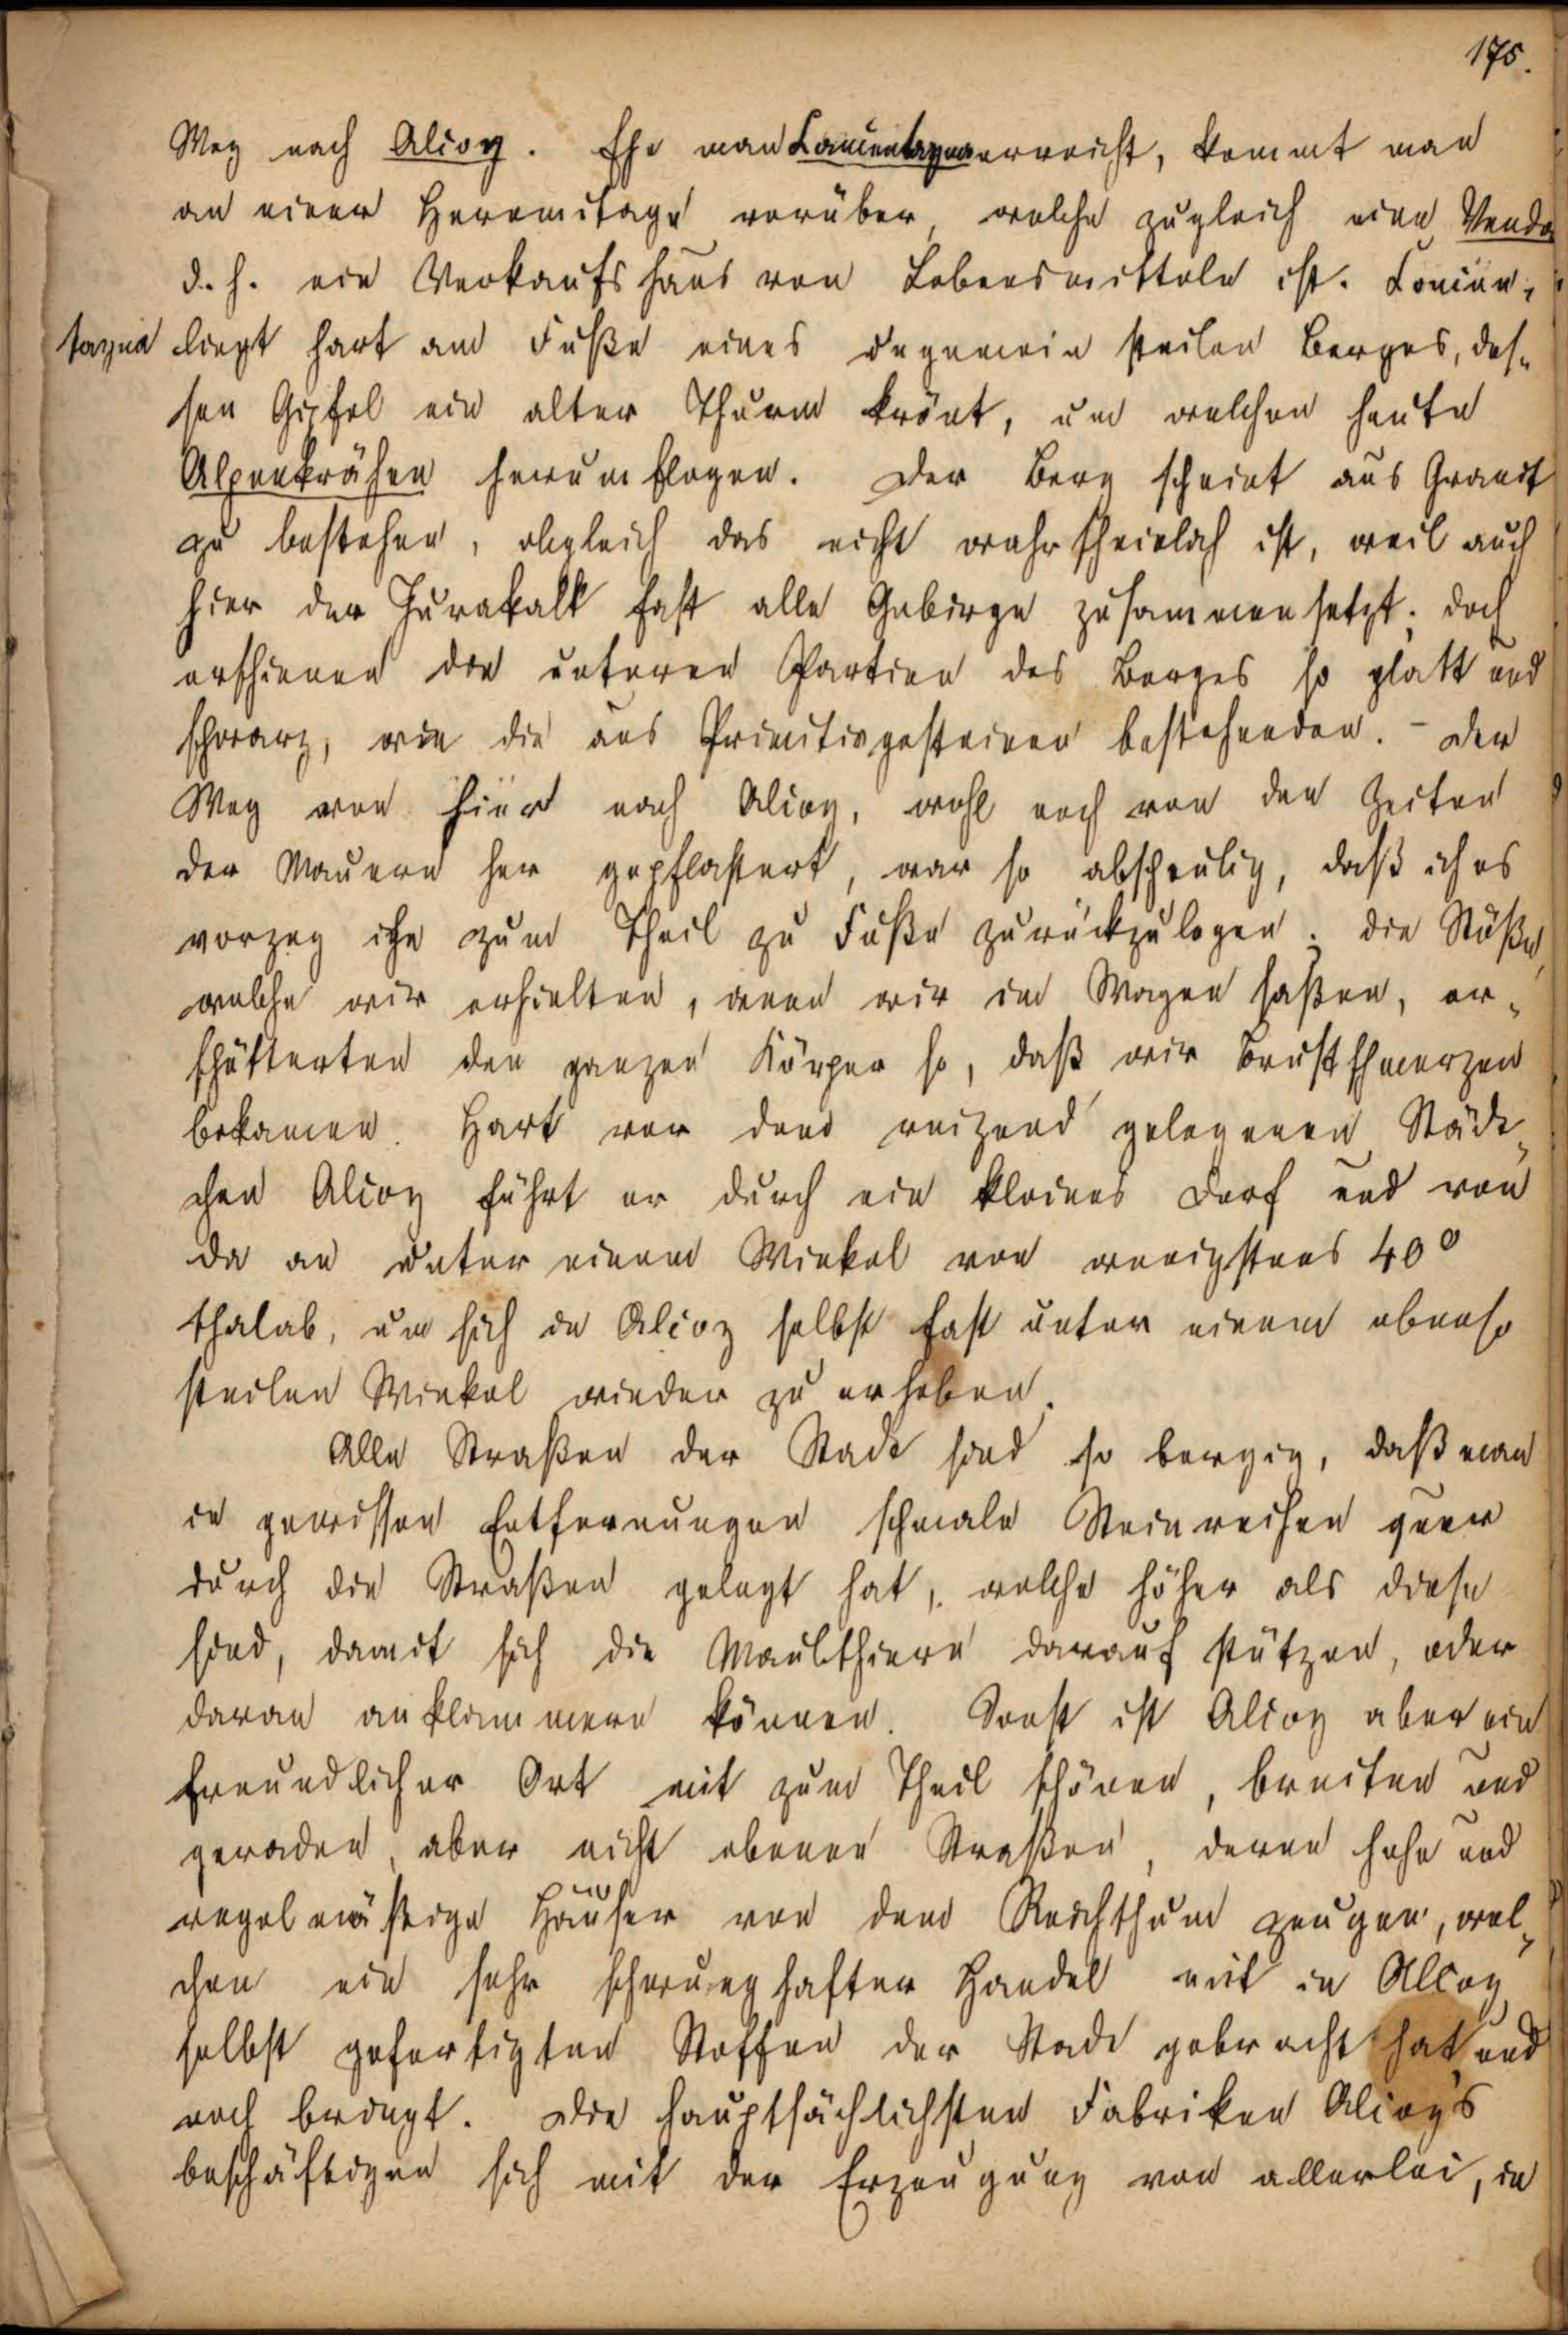 175.
Weg nach Alcoy. Ehe man Concentayna erreicht, kommt man
an einer Heremitage vorüber, welche zugleich eine Venda
d. h. ein Verkaufshaus von Lebensmitteln ist. Concen-
tayna liegt hart am Fuße eines ungemein steilen Berges, des-
sen Gipfel ein alter Thurm krönt, um welchen heute
Alpenkrähen herumflogen. Der Berg scheint aus Granit
zu bestehen, obgleich das nicht wahrscheinlich ist, weil auch
hier der Jurakalk fast alle Gebirge zusammensetzt; doch
erschienen die unteren Partien des Berges so glatt und
schwarz, wie die aus Primitivgesteinen bestehenden. - Der
Weg von hier nach Alcoy, wohl noch von den Zeiten
der Mauren her gepflastert, war so abscheulig, daß ich es
vorzog ihn zum Theil zu Fuße zurückzulegen; die Stöße,
welche wir erhielten, wenn wir im Wagen saßen, er-
schütterten den ganzen Körper so, daß wir Brustschmerzen
bekamen. Hart vor dem reizend gelegenen Städt-
chen Alcoy führt er durch ein kleines Dorf und von
da an unter einem Winkel von wenigstens 40°
thalab, um sich in Alcoy selbst fast unter einem ebenso
steilen Winkel wieder zu erheben.
Alle Straßen der Stadt sind so bergig, daß man
in gewissen Entfernungen schmale Steinreihen quer
durch die Straßen gelegt hat, welche höher als diese
sind, damit sich die Maulthiere darauf stützen, oder
daran anklammern können. Sonst ist Alcoy aber ein
freundlicher Ort mit zum Theil schönen, breiten und
geraden, aber nicht ebenen Straßen, deren hohe und
regelmäßige Häuser von dem Reichthum zeugen, wel-
chen ein sehr schwunghafter Handel mit in Alcoy
selbst gefertigten Stoffen der Stadt gebracht hat und
noch bringt. Die hauptsächlichsten Fabriken Alcoy's
beschäftigen sich mit der Erzeugung von allerlei, in